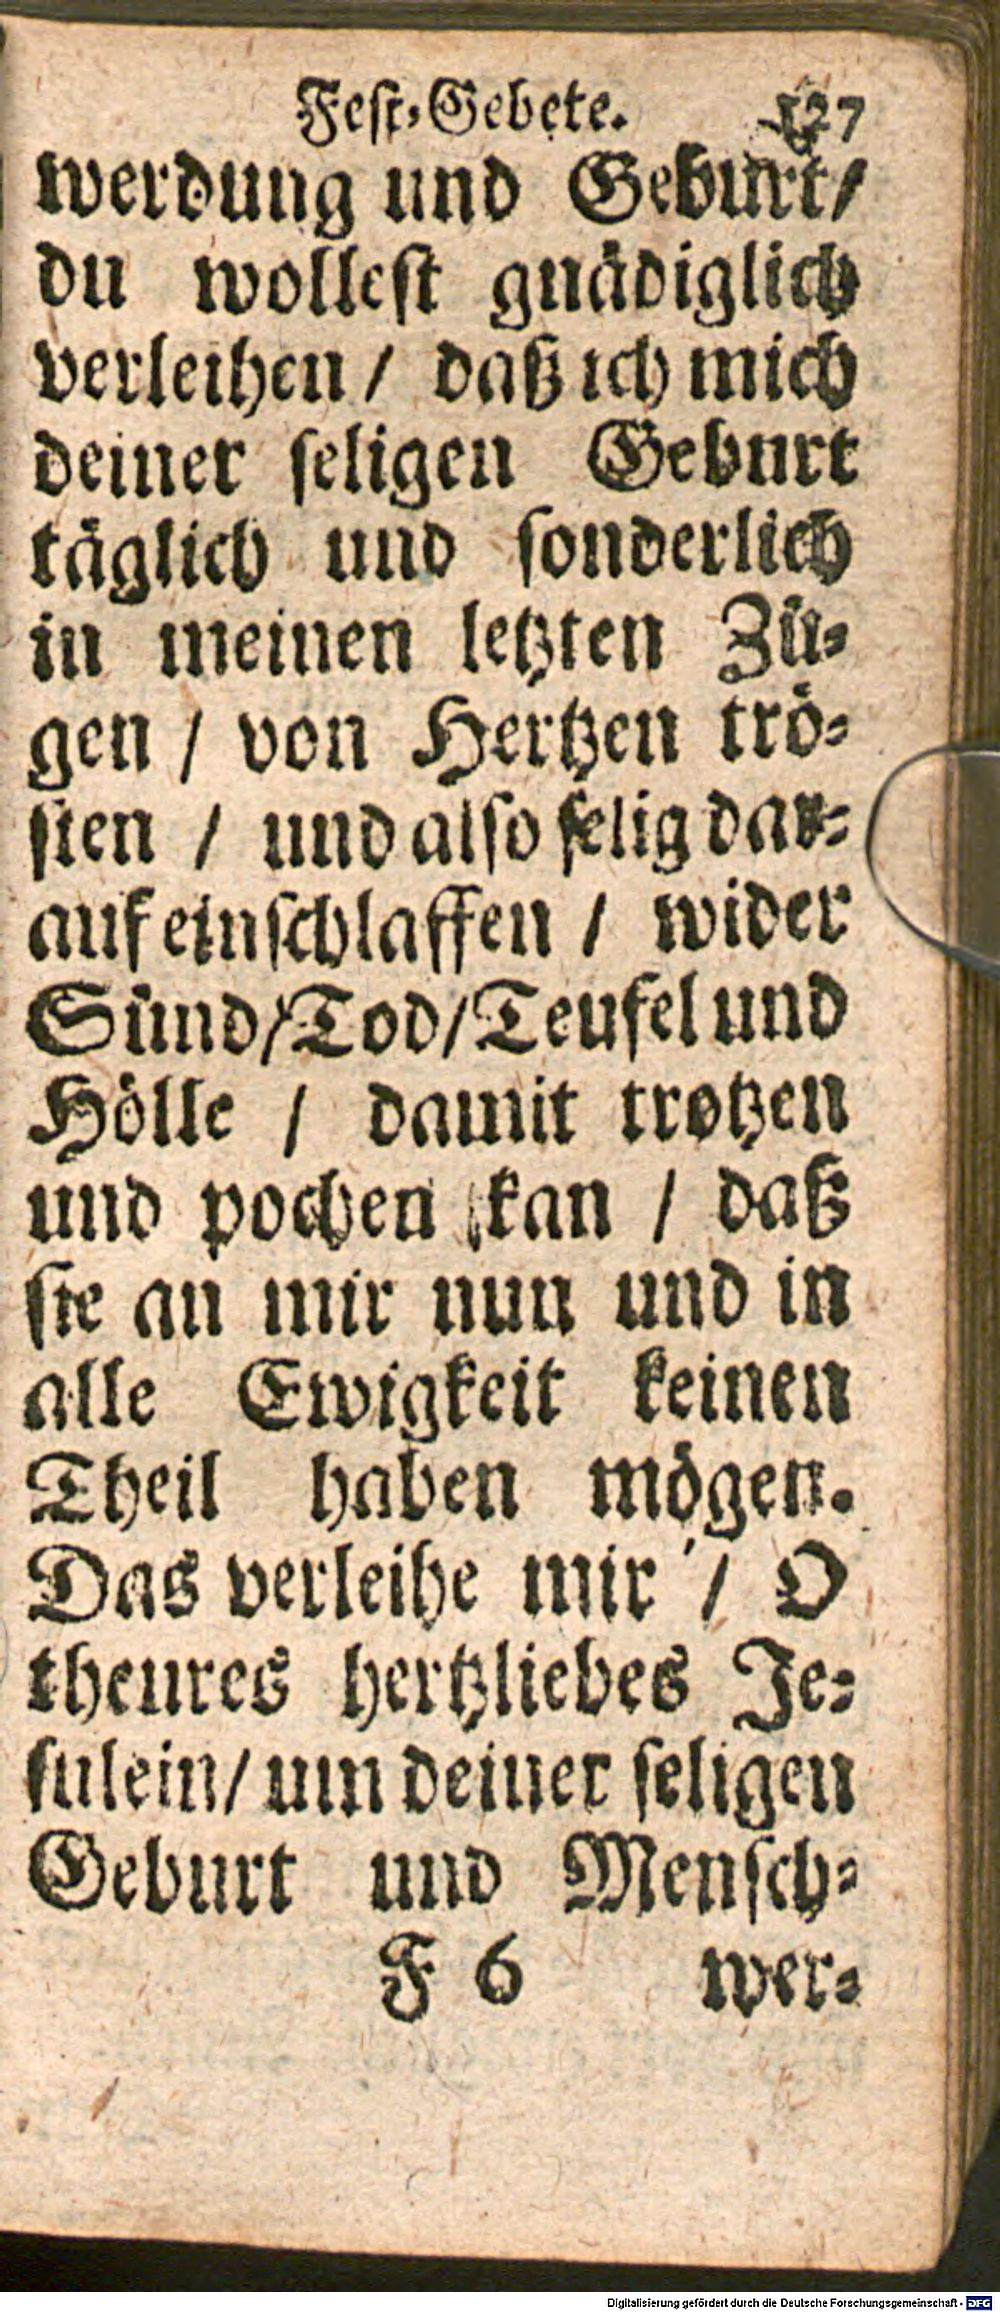 Fest-Gebete. 127
werdung und Geburt/
du wollest gnädiglich
verleihen / daß ich mich
deiner seligen Geburt
täglich und sonderlich
in meinen letzten Zü-
gen / von Hertzen trö-
sten / und also selig dar-
auf einschlaffen / wider
Sünd/Tod/Teufel und
Hölle / damit trotzen
und pochen kan / daß
sie an mir nun und in
alle Ewigkeit keinen
Theil haben mögen.
Das verleihe mir / O
theures hertzliebes Je-
sulein/ um deiner seligen
Geburt und Mensch-
F 6 wer-
Digitalisierung gefördert durch die Deutsche Forschungsgemeinschaft - DFG